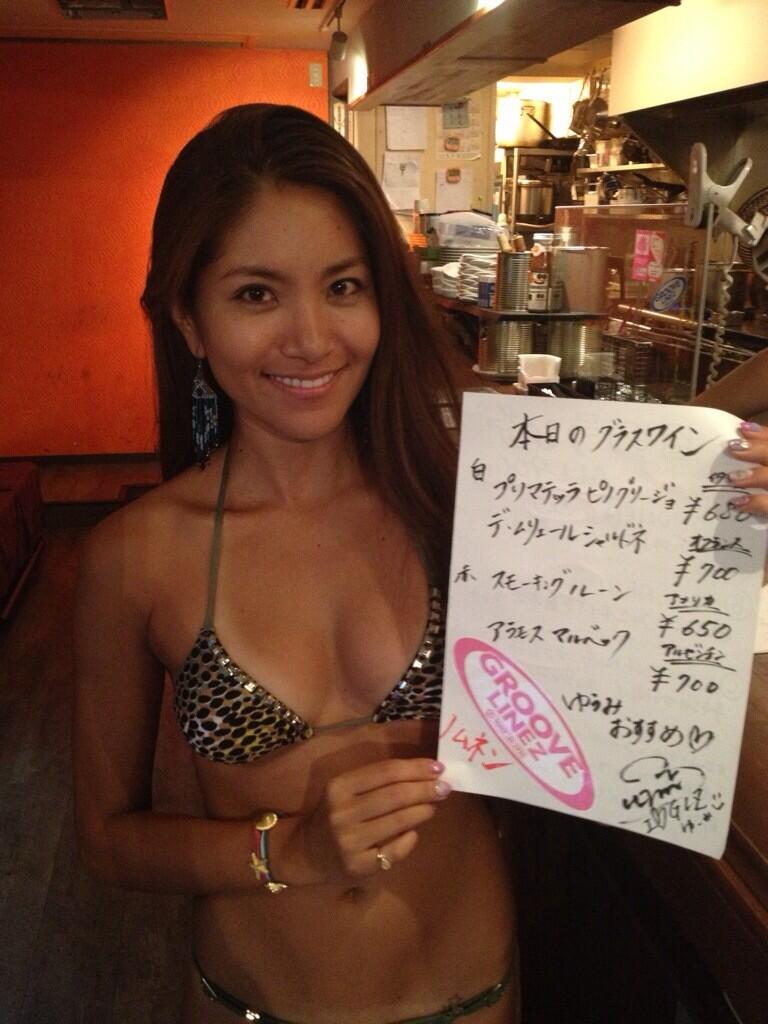 本日のグラスワイン
白
プリマテッラ ピノグリージョ
¥680
デ・ムリエール シャルドネ
¥700
赤 スモーキングルーン
アメリカ
¥650
アラモス マルベック
アルゼンチン
¥700
GROOVE
LINEZ
ゆうみ
おすすめ♡